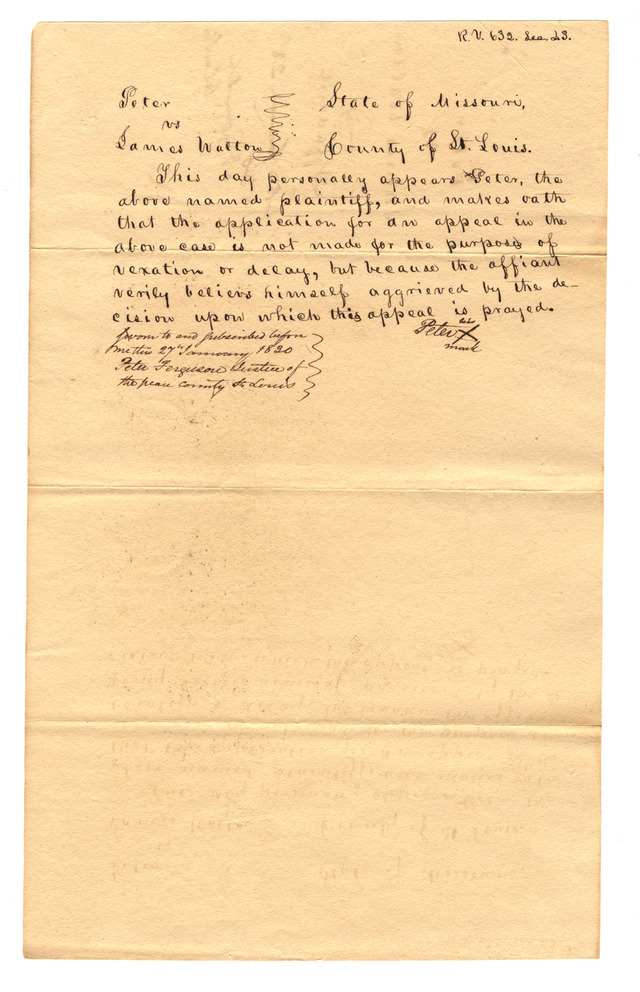 R.V. 632. Sec. 23.
Peter State of Missouri,
vs
James Walton County of St. Louis.
This day personally appears Peter, the
above named plaintiff, and makes oath
that the application for an appeal in the
above case is not made for the purpose of
vexation or delay, but because the affiant
verily believes himself aggrieved by the de-
cision upon which this appeal is prayed.
Peter X
mark
Sworn to and subscribed before
me this 27th January, 1830
Peter Ferguson Justice of
the peace county St. Louis